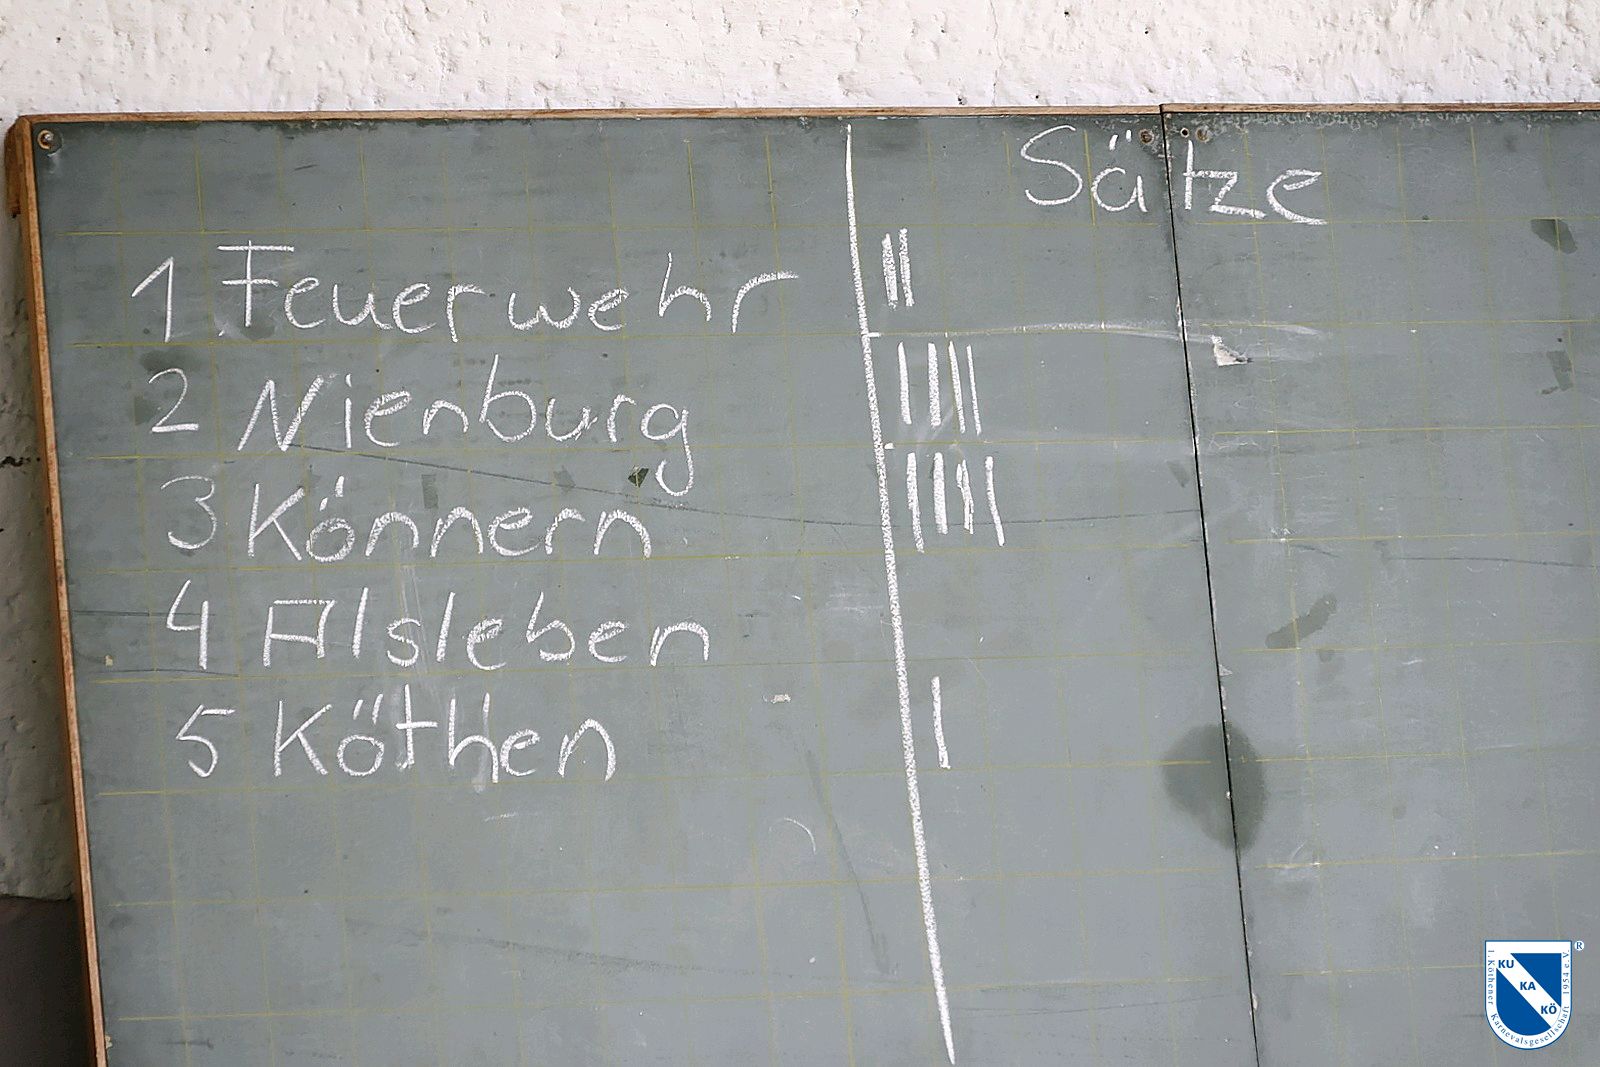 Sätze
1. Feuerwehr ||
2 Nienburg ||||
3 Könnern ||||
4 Alsleben
5 Köthen |
KU
KA
KÖ
1. Köthener Karnevalsgesellschaft 1954 e.V.
®